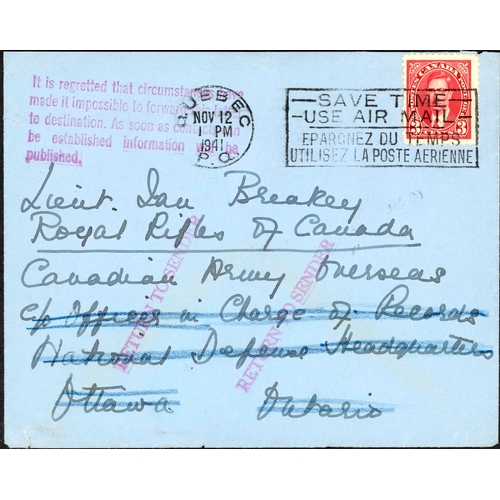 It is regretted that circumstances have
made it impossible to forward this letter
to destination. As soon as contact can
be established information will be
published.
QUEBEC
NOV 12
1 PM
1941
P.Q.
SAVE TIME
USE AIR MAIL
EPARGNEZ DU TEMPS
UTILISEZ LA POSTE AERIENNE
CANADA
3 3
Lieut. Ian Breakey
Royal Rifles of Canada
Canadian Army Overseas
c/o Officer in Charge of Records
National Defense Headquarters
Ottawa Ontario
RETURN TO SENDER
RETURN TO SENDER